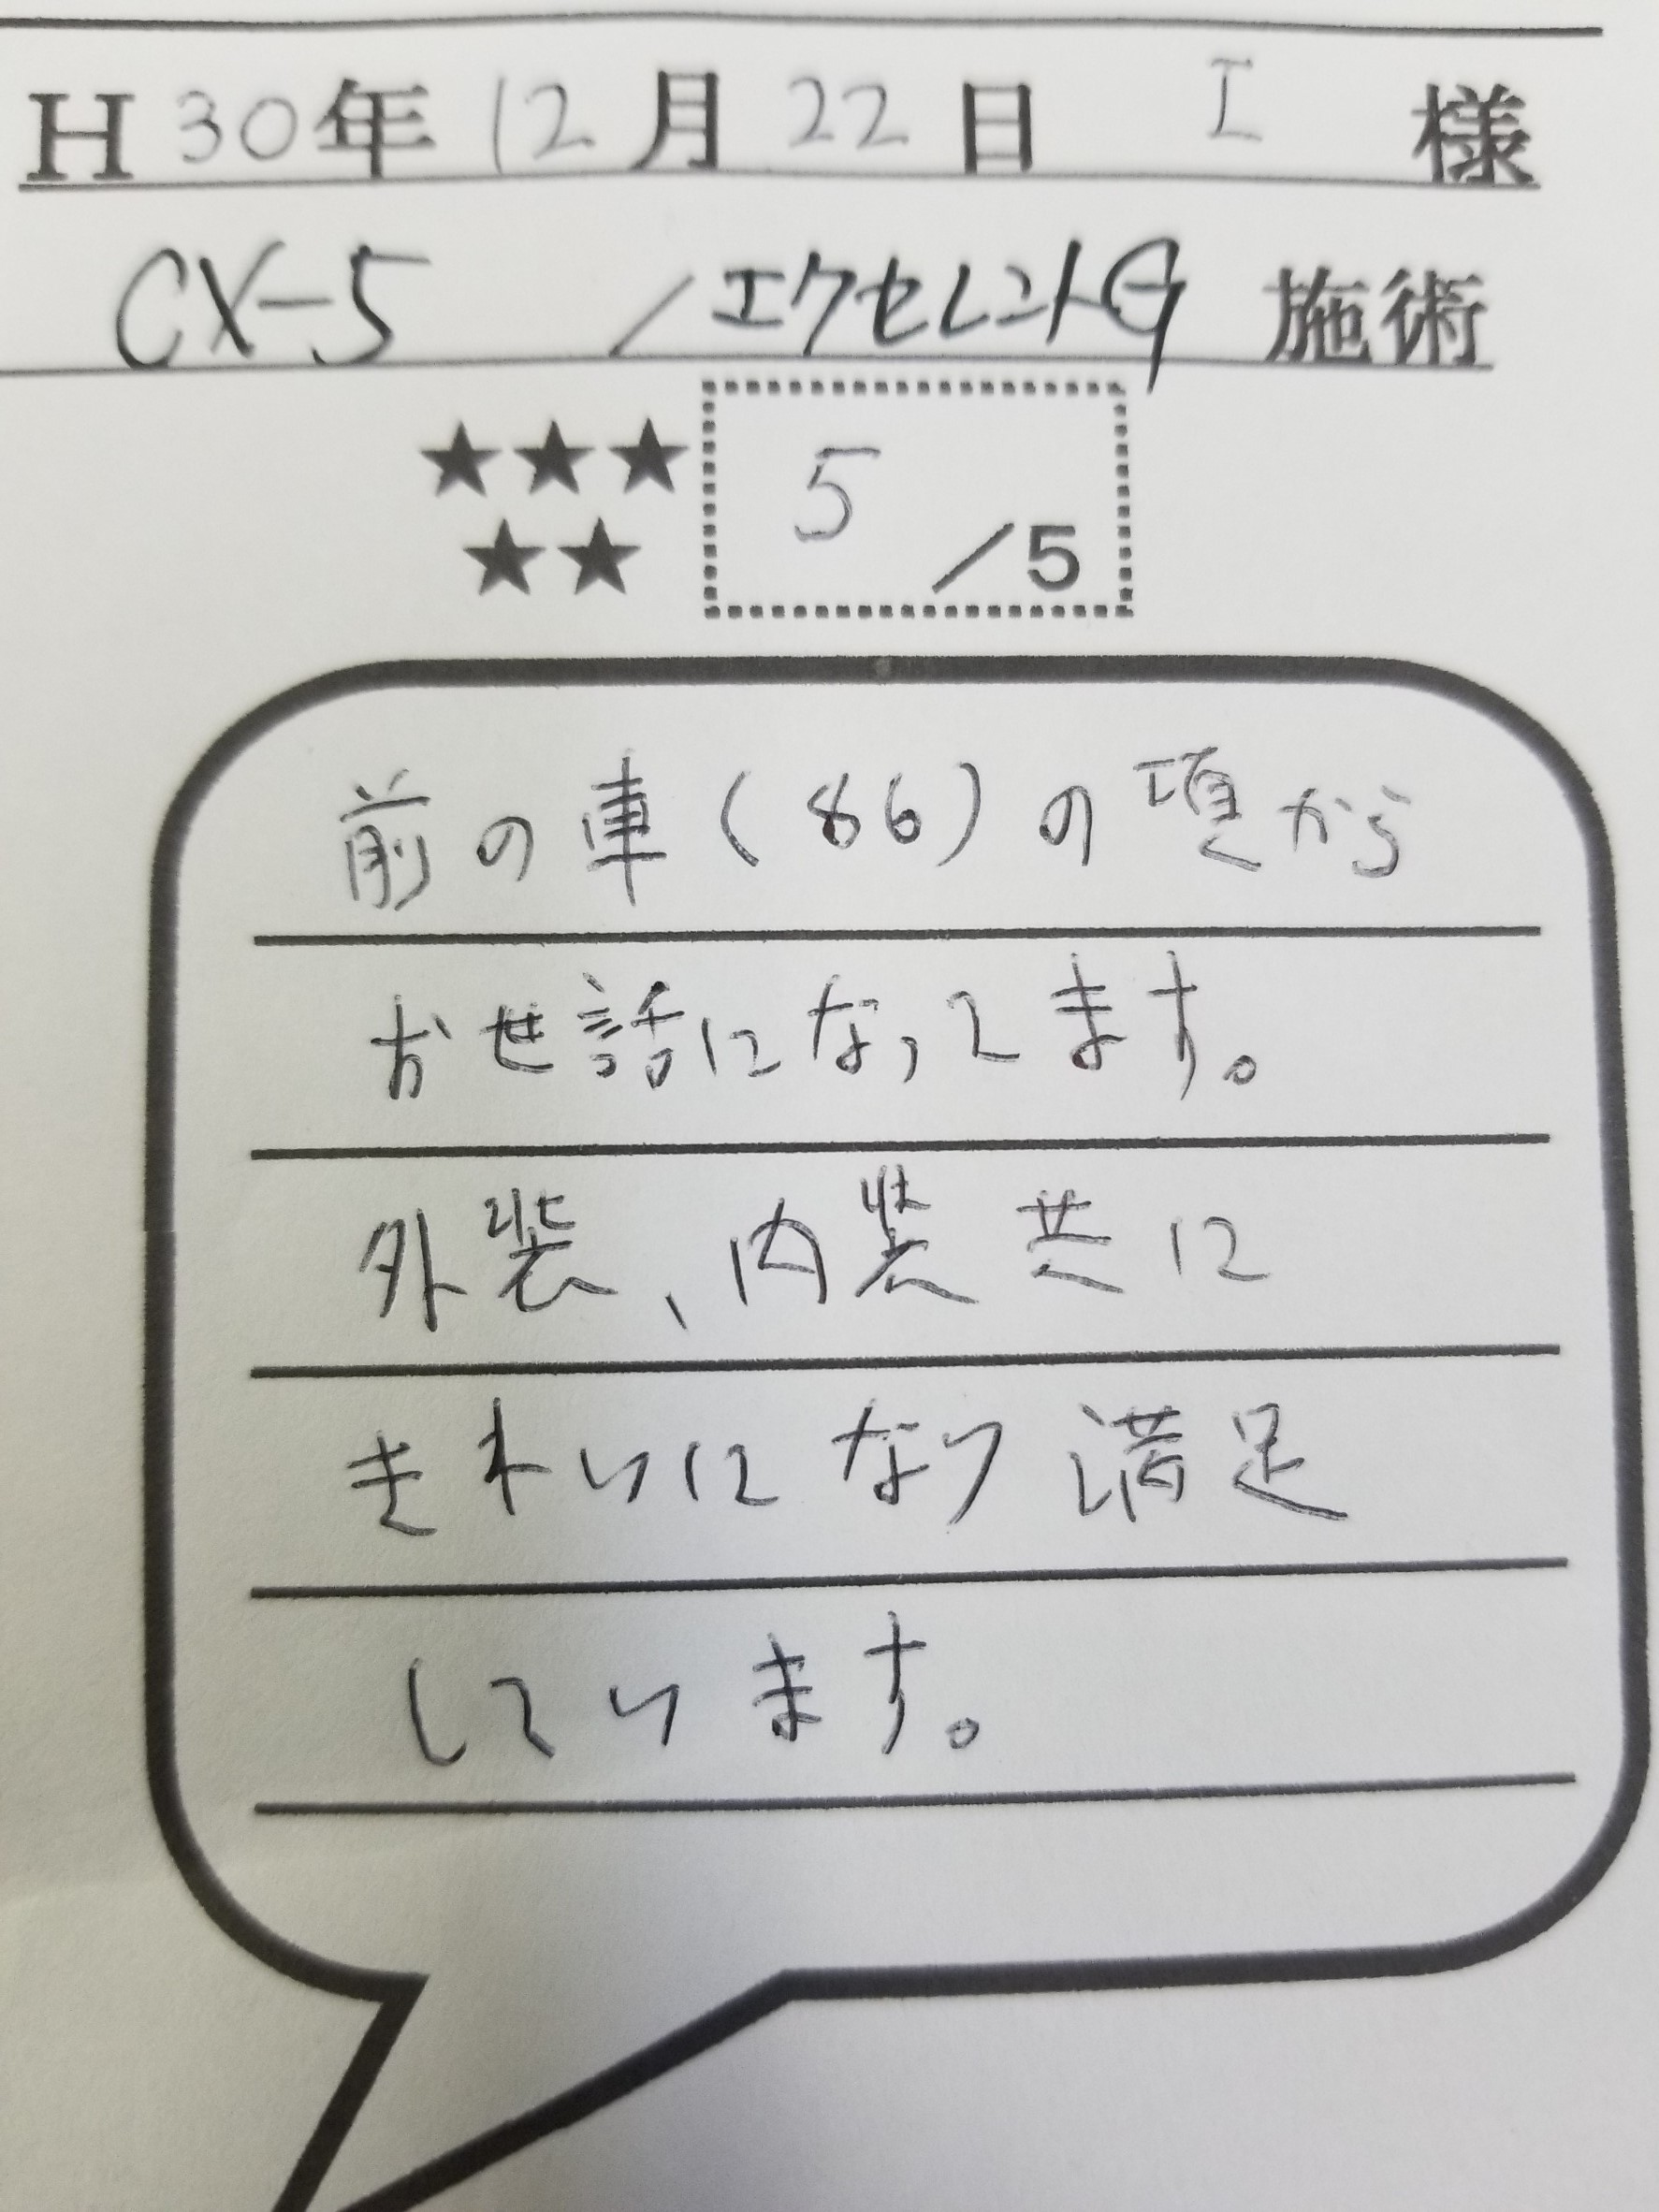 H 30年 12月 22日 I 様
CX-5 /エクセレントG 施術
★★★
★★
5 /5
前の車(86)の頃から
お世話になってます。
外装、内装共に
きれいになり満足
しています。